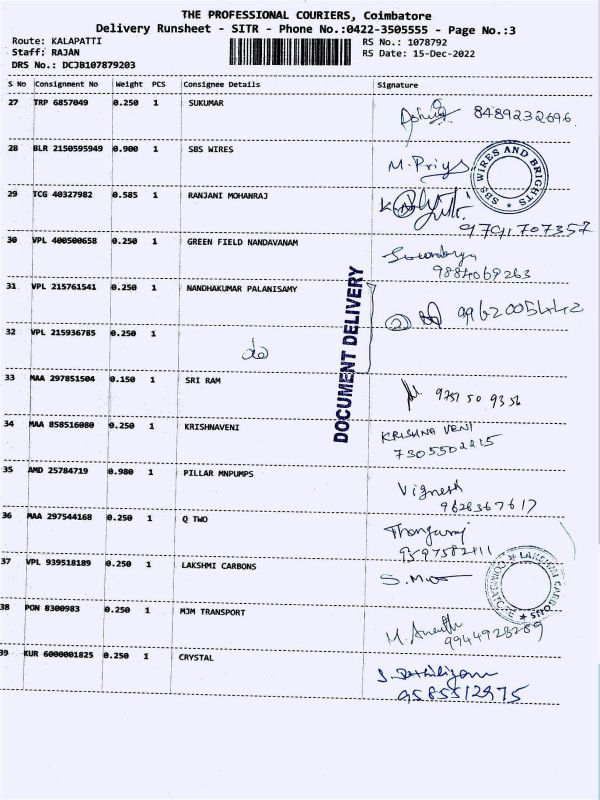 THE PROFESSIONAL COURIERS, Coimbatore
Delivery Runsheet - SITR - Phone No.:0422-3505555 - Page No.:3
Route: KALAPATTI RS No.: 1078792
Staff: RAJAN RS Date: 15-Dec-2022
DRS No.: DCJB107879203
S No Consignment No Weight PCS Consignee Details Signature
27 TRP 6857049 0.250 1 SUKUMAR 8489232696
28 BLR 2150595949 0.900 1 SBS WIRES M. Priya
SBS WIRES AND BRIGHTS
29 TCG 40327982 0.585 1 RANJANI MOHANRAJ
9791707357
30 VPL 400500658 0.250 1 GREEN FIELD NANDAVANAM
9884069263
31 VPL 215761541 0.250 1 NANDHAKUMAR PALANISAMY
2 9962005442
DOCUMENT DELIVERY
32 VPL 215936785 0.250 1
do
33 MAA 297851504 0.150 1 SRI RAM
9751 50 9356
34 MAA 858516080 0.250 1 KRISHNAVENI KRISHNA VENI
7305502215
35 AMD 25784719 0.980 1 PILLAR MNPUMPS
Vignesh
9626367617
36 MAA 297544168 0.250 1 Q TWO
Thangaraj
9597582111
37 VPL 939518189 0.250 1 LAKSHMI CARBONS
LAKSHMI CARBONS
38 PON 8300983 0.250 1 MJM TRANSPORT
M. Ananth
9944928289
39 KUR 6000001825 0.250 1 CRYSTAL
9585512975